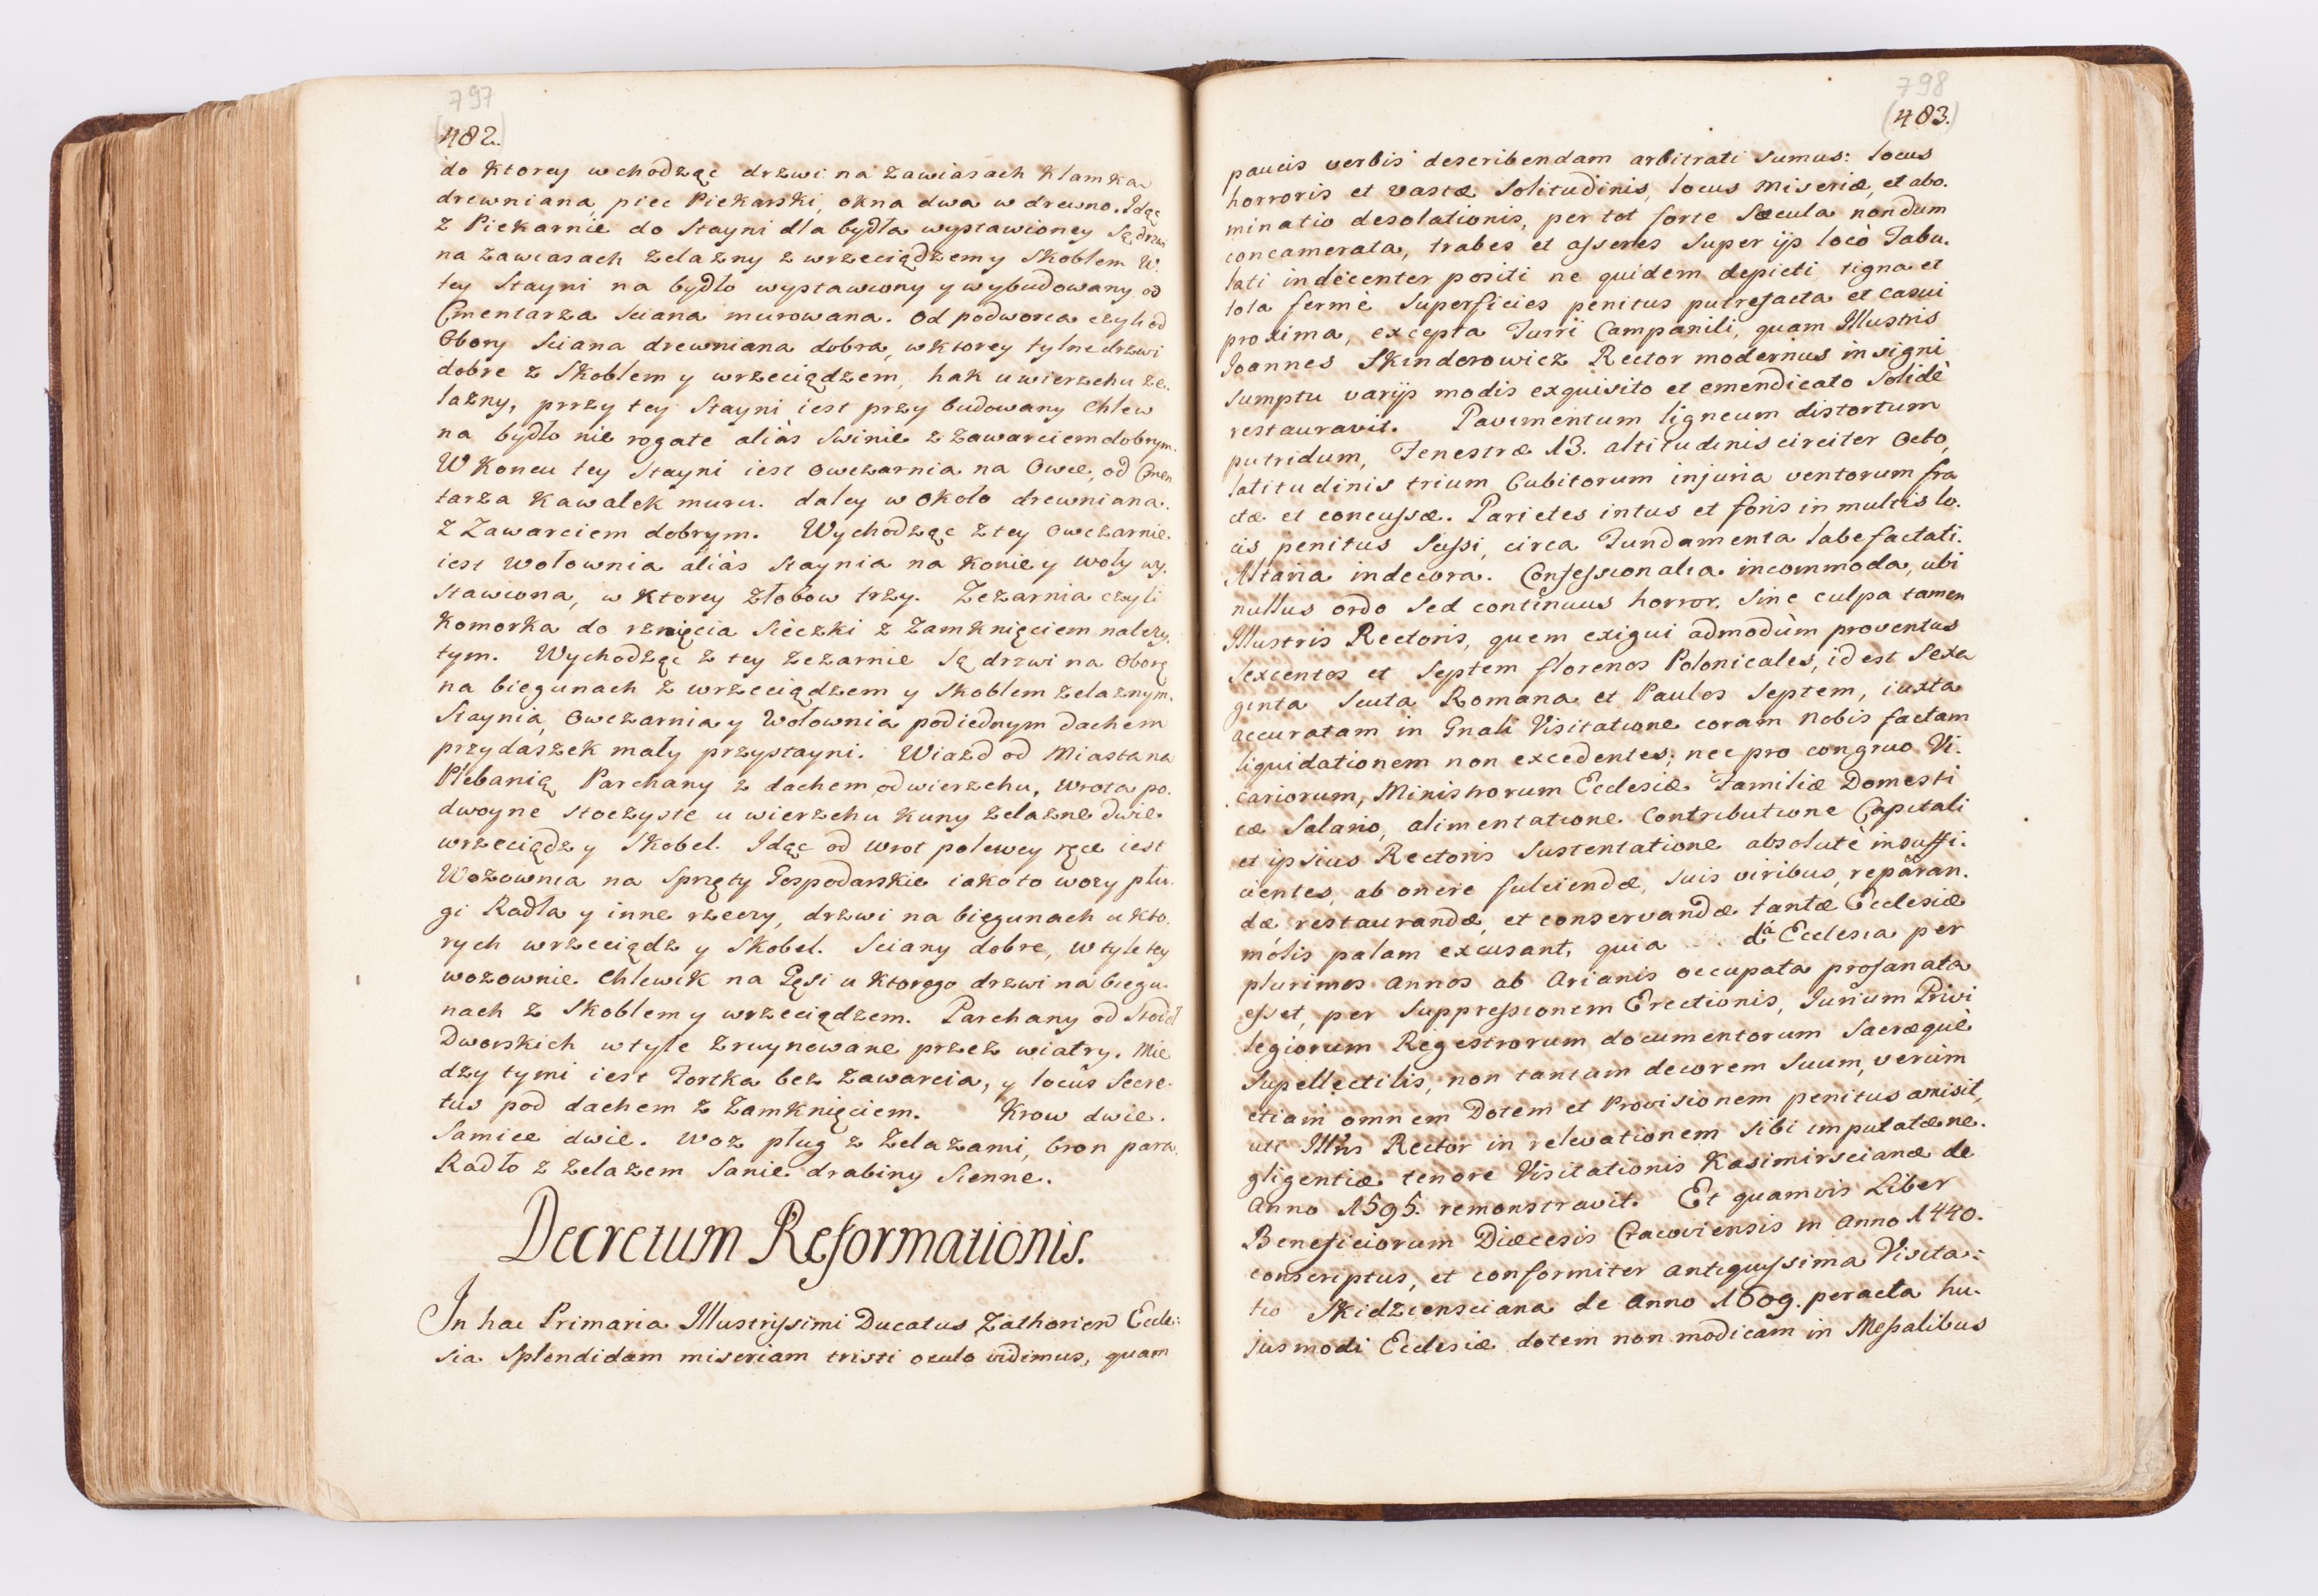 797
(482.)
do Ktorey wchodząc drzwi na zawiasach Klamka
drewniana, piec Piekarski, okna dwa w drewno. Idąc
z Piekarnie do Stayni dla bydła wystawioney Są drzwi
na zawiasach żelazny z wrzeciądzem y Skoblem W.
tey Stayni na bydło wystawiony y wybudowany od
Cmentarza Sciana murowana. Od podworca czyli od
Obory Sciana drewniana dobra, w ktorey tylne drzwi
dobre z Skoblem y wrzeciądzem, hak u wierzchu że.
lazny, przy tey Stayni iest przy budowany Chlew
na bydło nie rogate aliàs Swinie z zawarciem dobrym.
W Koncu tey Stayni iest owczarnia na Owce, od Cmen
tarza Kawalek muru. daley w Około drewniana.
z Zawarciem dobrym. Wychodząc z tey owczarnie.
iest wołownia aliàs Staynia na Konie y woły wy.
stawiona, w Ktorey Złobow trzy. Zeżarnia czyli
Komorka do rznięcia Sieczki z Zamknięciem należy.
tym. Wychodząc z tey zeżarnie Są drzwi na Oborę
na biegunach z wrzeciądzem y Skoblem żelaznym.
Staynia, Owczarnia y Wołownia pod iednym dachem
przydaszek mały przystayni. Wiazd od Miasta na
Plebanią Parchany z dachem od wierzchu, wrota po.
dwoyne stoczyste u wierzchu Kuny żelazne dwie.
wrzeciądz y Skobel. Idąc od wrot po lewey ręce iest
Wozownia na Spręty Gospodarskie iako to wozy płu.
gi Radła y inne rzeczy, drzwi na biegunach u kto.
rych wrzeciądz y Skobel. Sciany dobre, w tyle tey
wozownie Chlewik na Gęsi u Ktorego drzwi na biegu.
nach z Skoblem y wrzeciądzem. Parchany od Stodoł
Dworskich w tyle zruynowane przez wiatry. Mie
dzy tymi iest Fortka bez zawarcia, y locus Secre.
tus pod dachem z Zamknięciem. Krow dwie.
Samice dwie. Woz pług z Zelazami, bron para.
Radło z żelazem Sanie drabiny Sienne.
Decretum Reformationis.
In hac Primaria Illustrissimi Ducatus Zathorien Eccle:
sia Splendidam miseriam tristi oculo vidimus, quam
798
(483.)
paucis verbis describendam arbitrati sumus: locus
horroris et vastæ Solitudinis, locus miseriæ, et abo.
minatio desolationis, per tot forte Sæcula nondum
concamerata, trabes et asseres Super ijs locò Tabu.
lati indecenter positi ne quidem depicti, tigna et
tota fermè Superficies penitus putrefacta et casui
proxima, excepta Turri Campanili, quam Illustris
Joannes Skinderowicz Rector modernus insigni
Sumptu varijs modis exquisito et emendicato Solidè
restauravit. Pavimentum ligneum distortum
putridum, Fenestræ 13. altitudinis circiter octo,
latitudinis trium Cubitorum injuria ventorum fra
ctæ et concussæ. Parietes intus et foris in multis lo.
cis penitus Scissi, circa Fundamenta labefactati.
Altaria indecora. Confessionalia incommoda, ubi
nullus ordo Sed continuus horror, Sine culpa tamen
Illustris Rectoris, quem exigui admodùm proventus
Sexcentos et Septem florenos Polonicales, id est Sexa
ginta Scuta Romana et Paulos Septem, iuxta
accuratam in Gnali Visitatione coram Nobis factam
liquidationem non excedentes; nec pro congruo Vi.
cariorum, Ministrorum Ecclesiæ Familiæ Domesti
cæ Salario, alimentatione Contributione Capitali
et ipsius Rectoris Sustentatione absolutè insuffi.
cientes, ab onere fulciendæ, suis viribus, reparan.
dæ restaurandæ, et conservandæ tantæ Ecclesiæ
mólis palam excusant, quia da Ecclesia per
plurimos Annos ab Arianis occupata profanata
esset, per Suppressionem Erectionis, Iurium Privi
legiorum Regestrorum documentorum Sacræquè
Supellectilis, non tantum decorem Suum, verùm
etiam omnem Dotem et Provisionem penitus amisit,
uti Illris Rector in relevationem Sibi imputatæ ne.
gligentiæ tenore Visitationis Kasimirscianæ de
Anno 1595. remonstravit. Et quamvis Liber
Beneficiorum Diæcesis Cracoviensis in Anno 1440.
conscriptus, et conformiter antiquissima Visita:
tio Skidziensciana de Anno 1609. peracta hu.
jusmodi Ecclesiæ dotem non modicam in Messalibus